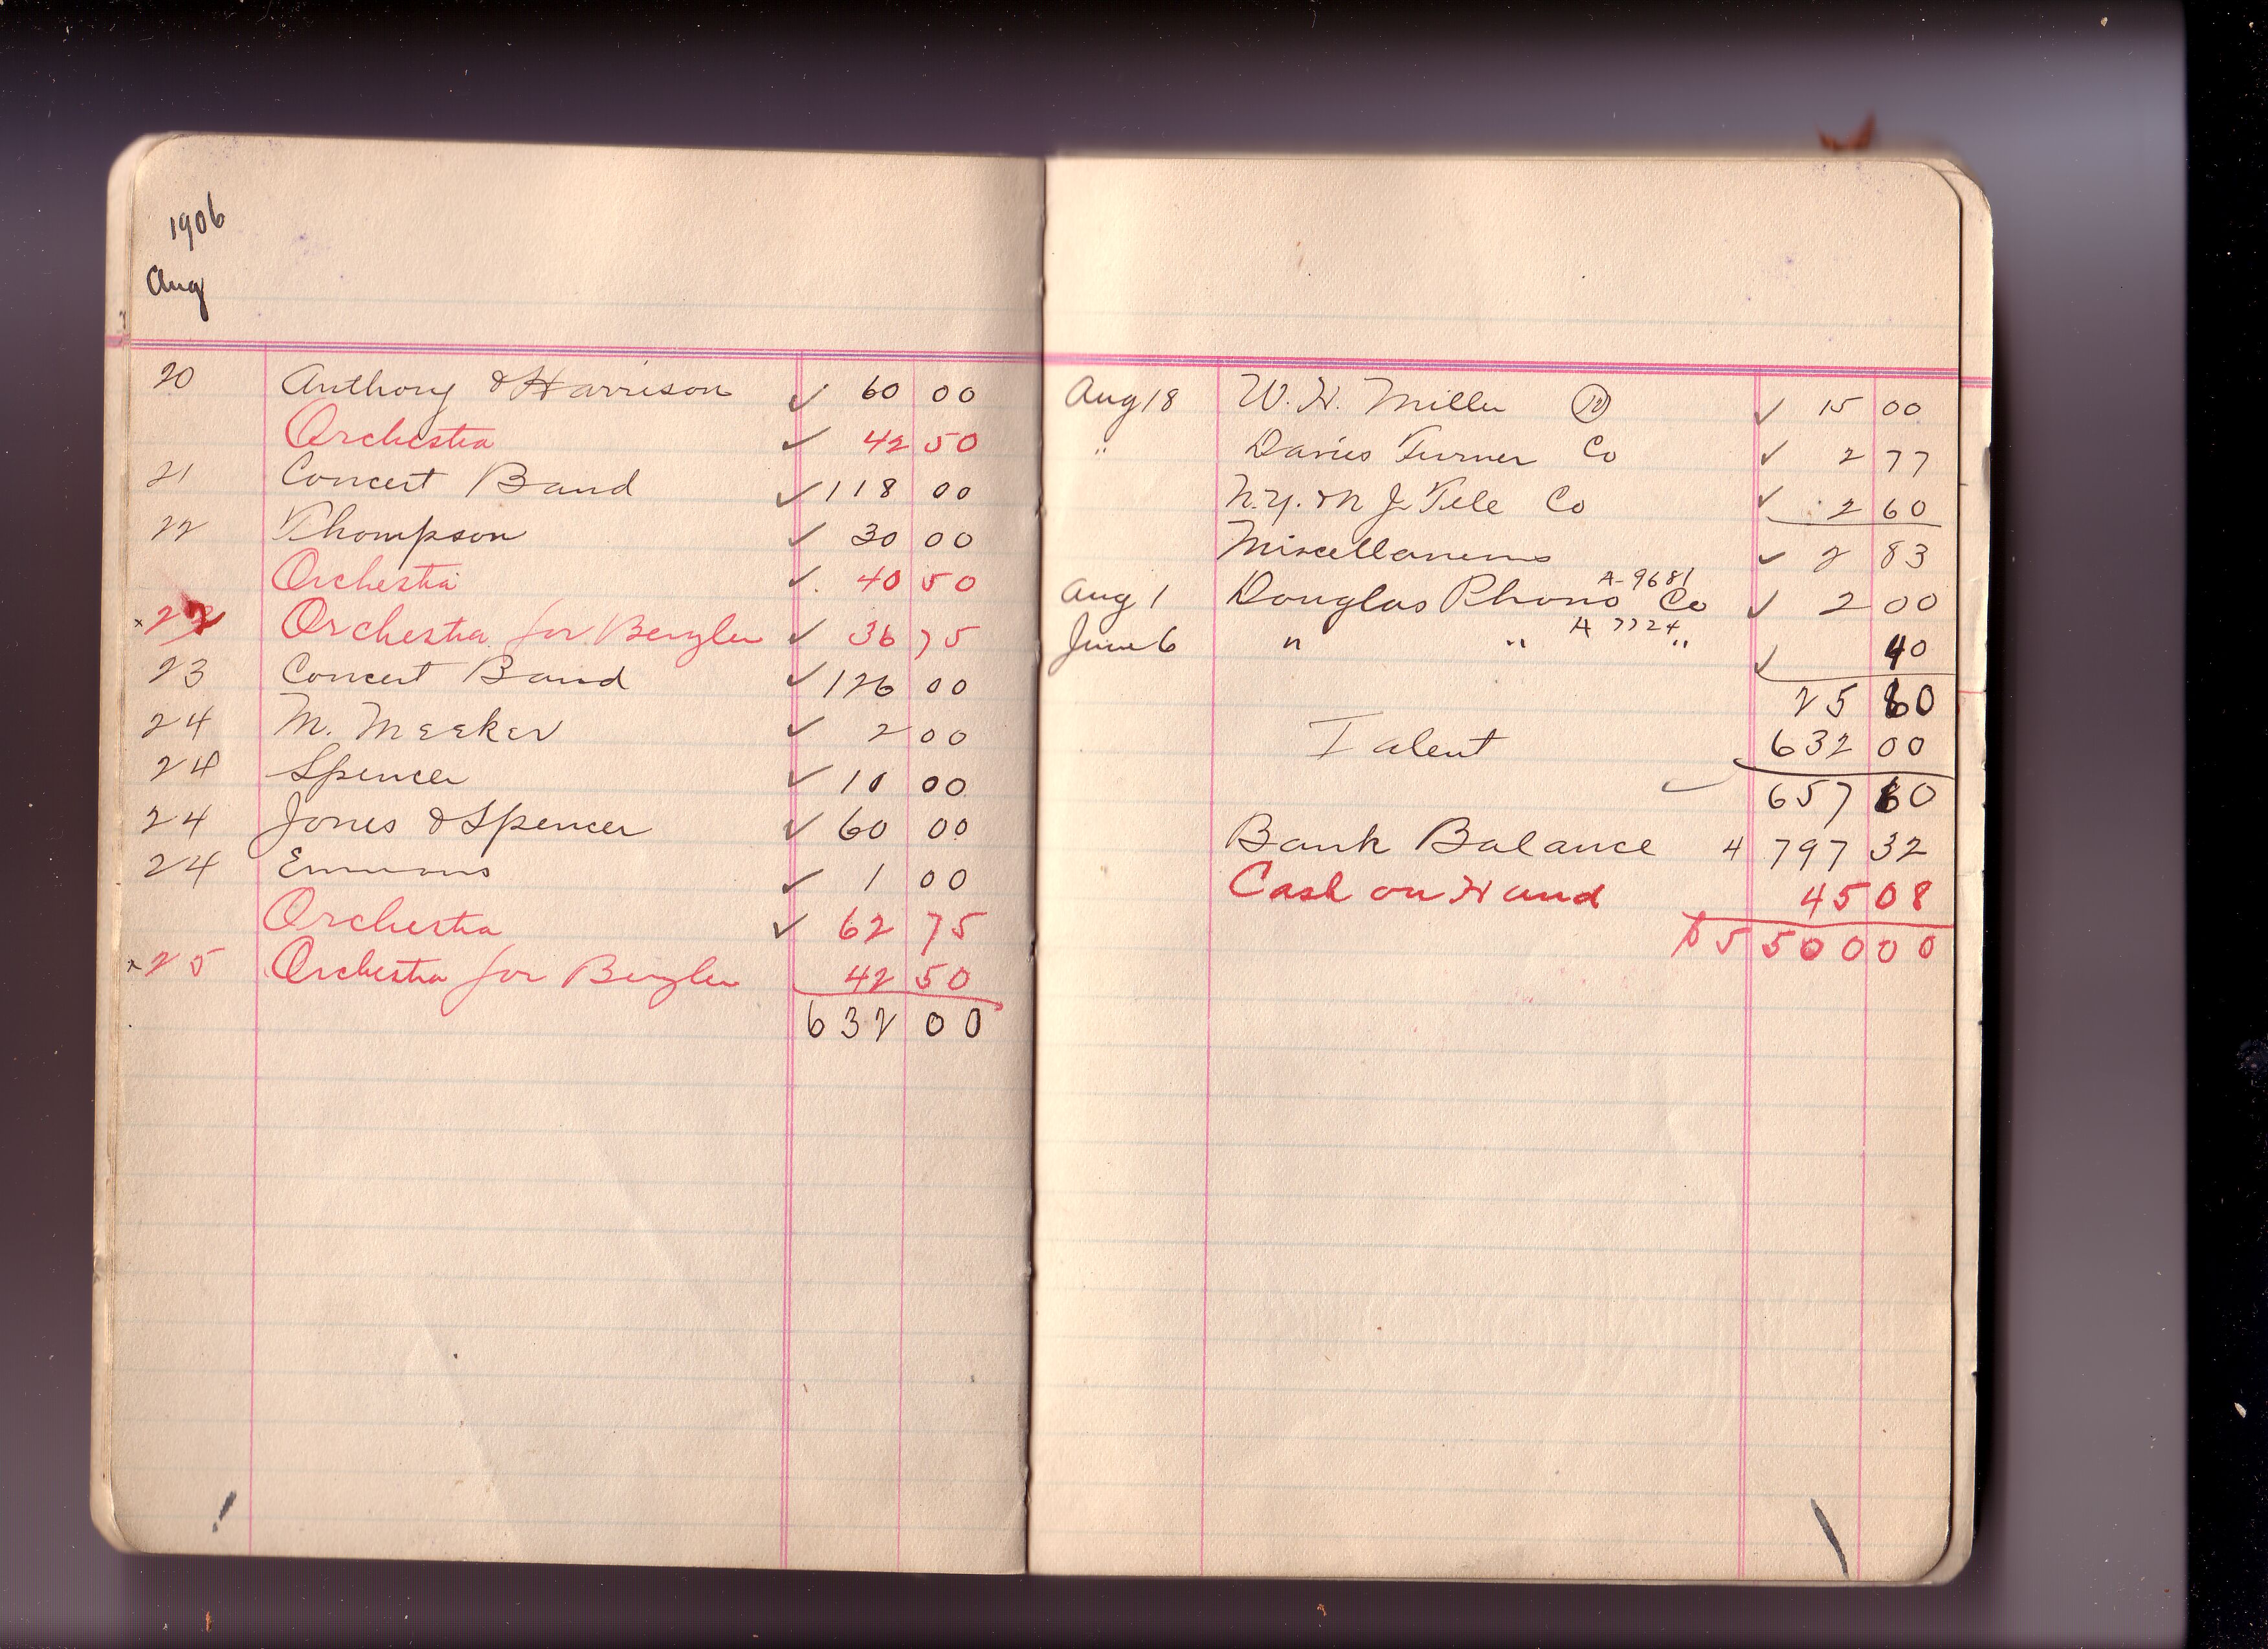 1906
Aug
20 Anthony & Harrison ✓ 60 00
Orchestra ✓ 42 50
21 Concert Band ✓ 118 00
22 Thompson ✓ 30 00
Orchestra ✓ 40 50
Orchestra for Benzler ✓ 36 75
23 Concert Band ✓ 126 00
24 M. Meeker ✓ 2 00
24 Spencer ✓ 10 00
24 Jones & Spencer ✓ 60 00
24 Emmons ✓ 1 00
Orchestra ✓ 62 75
x 25 Orchestra for Benzler 42 50
632 00
Aug 18 W. H. Miller ✓ 15 00
" Davies Turner Co ✓ 2 77
N.Y. & N J Tele Co ✓ 2 60
Miscellaneous ✓ 2 83
Aug 1 Douglas Phono Co A-9681 ✓ 2 00
June 6 " " A 7724 " ✓ 40
25 60
Talent 632 00
✓ 657 60
Bank Balance 4 797 32
Cash on Hand 45 08
$5 500 00